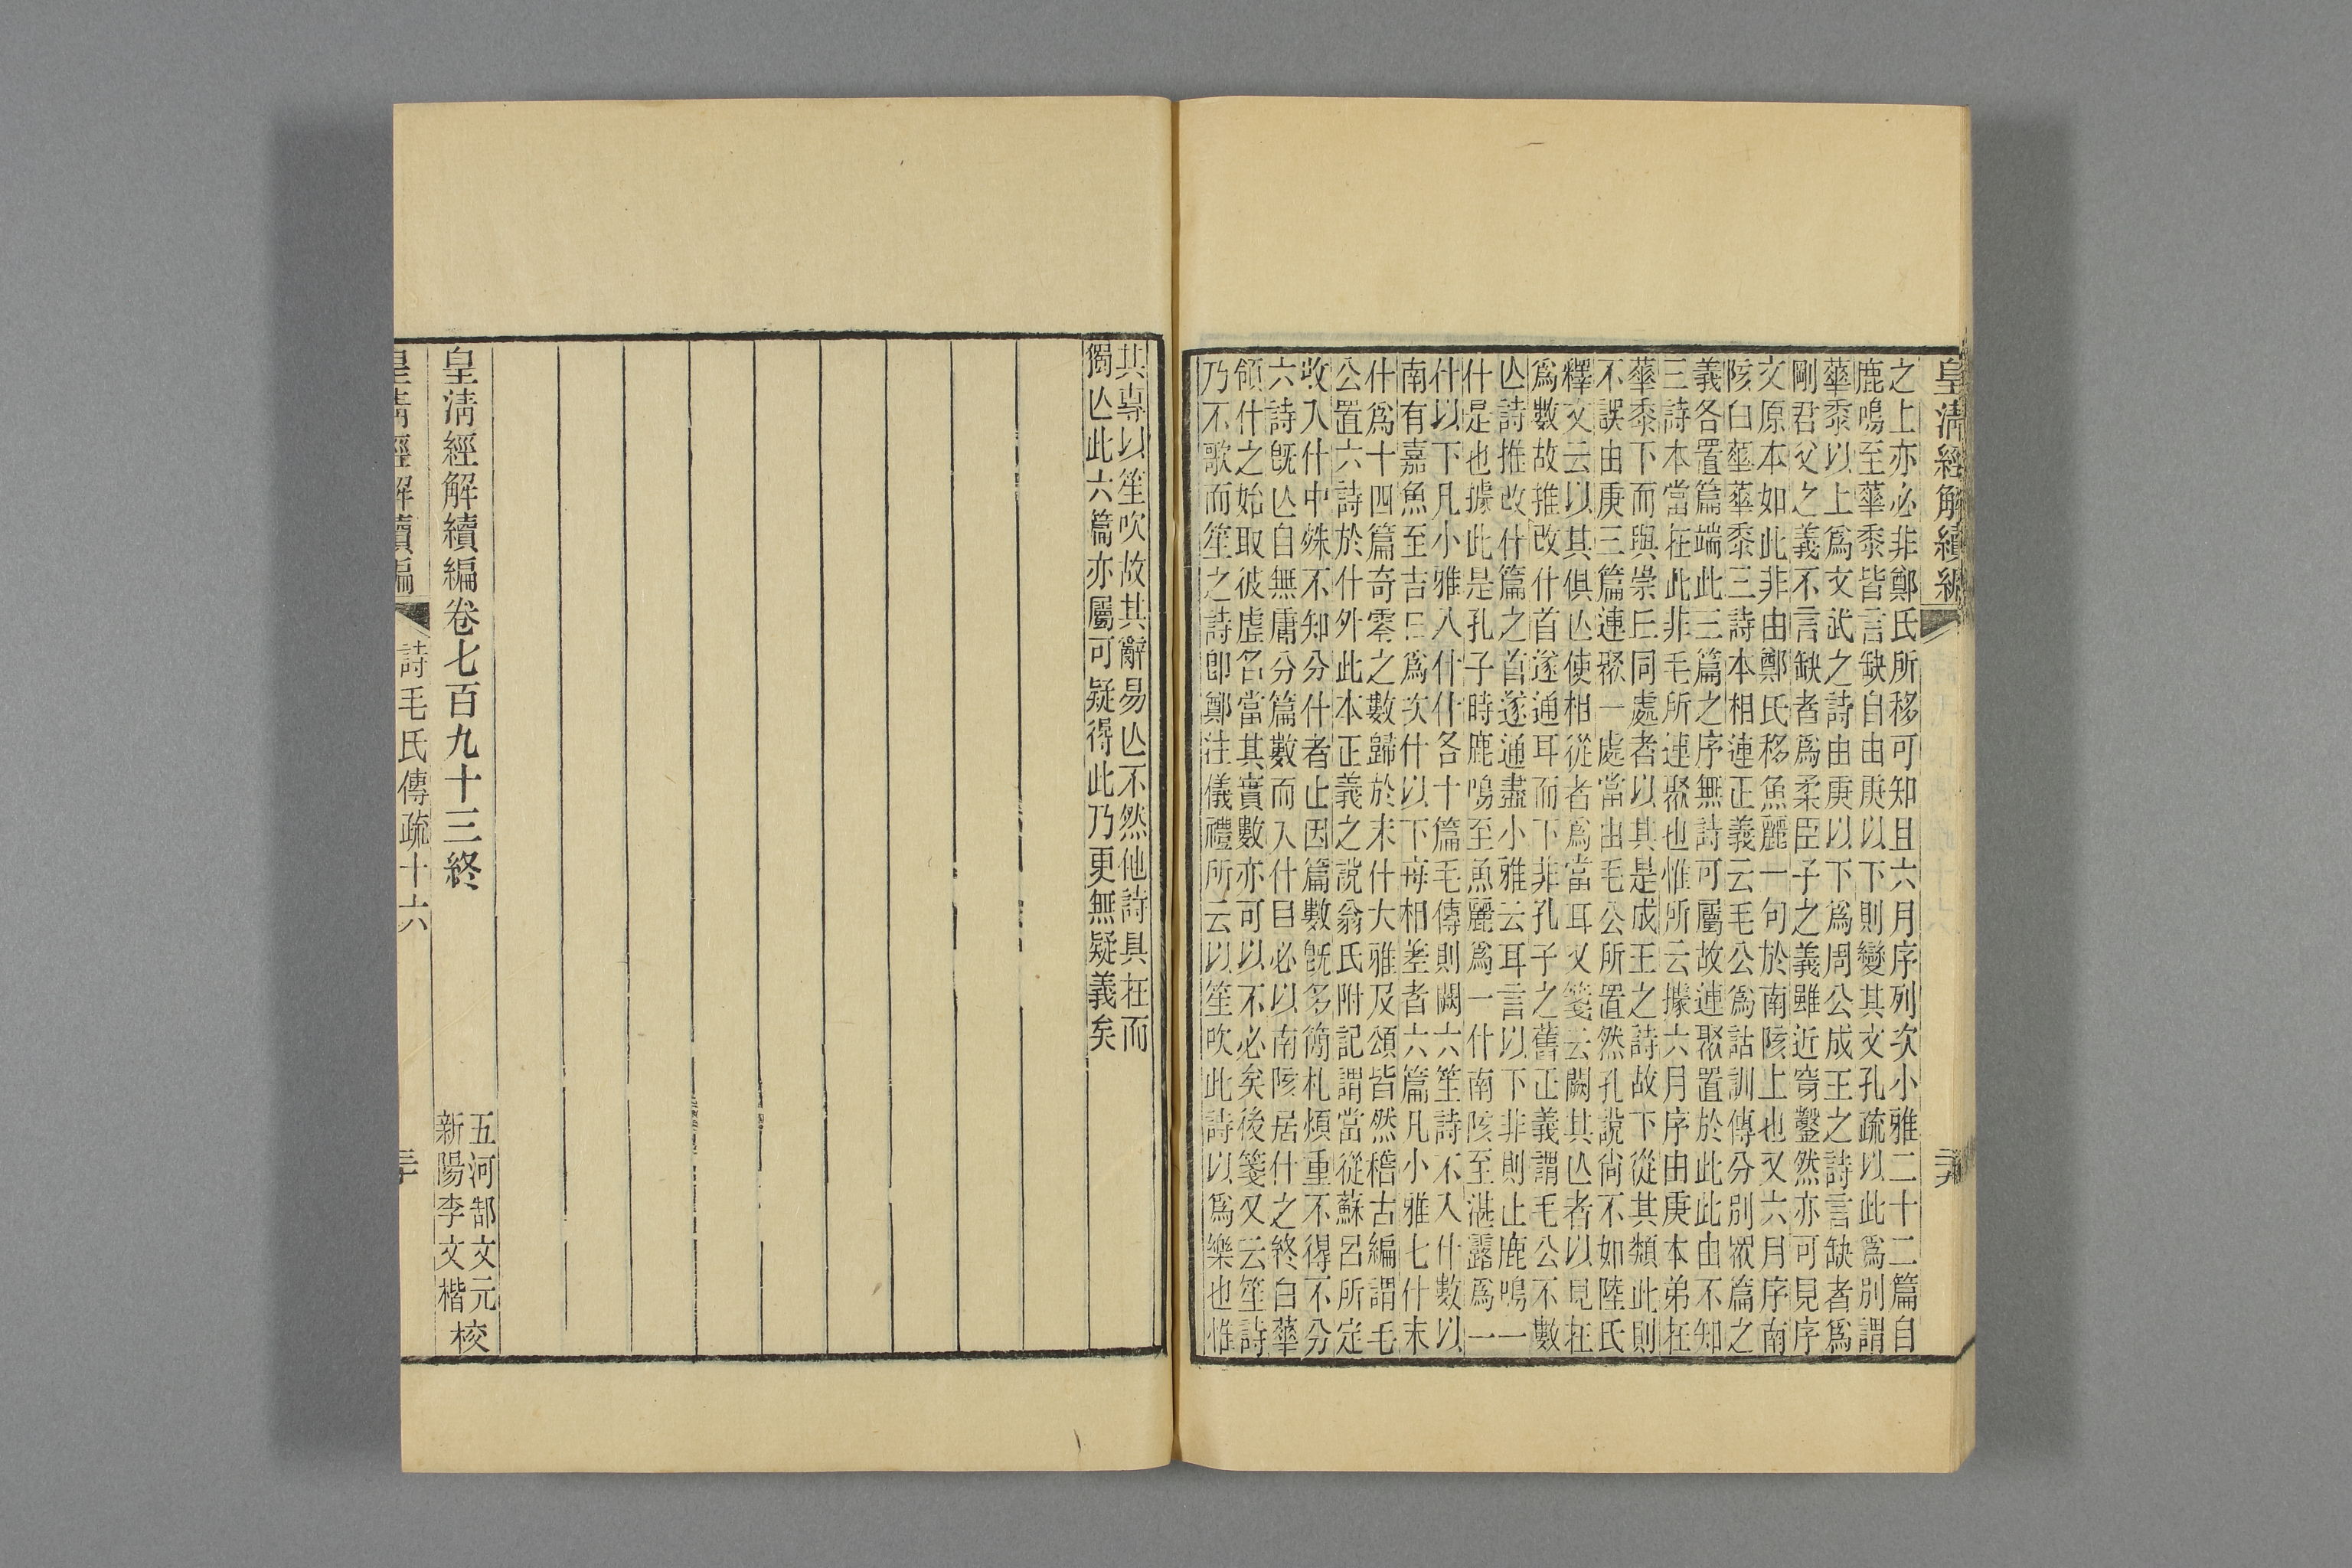 皇清經解續編
之上亦必非鄭氏所移可知且六月序列次小雅二十二篇自
鹿鳴至華黍皆言缺自由庚以下則變其文孔疏以此爲別謂
華黍以上爲文武之詩由庚以下爲周公成王之詩言缺者爲
剛君父之義不言缺者爲柔臣子之義雖近穿鑿然亦可見序
文原本如此非由鄭氏移魚麗一句於南陔上也又六月序南
陔白華華黍三詩本相連正義云毛公爲詁訓傳分別眾篇之
義各置篇端此三篇之序無詩可屬故連聚置於此此由不知
三詩本當在此非毛所連聚也惟所云據六月序由庚本弟在
華黍下而與崇丘同處者以其是成王之詩故下從其類此則
不誤由庚三篇連聚一處當出毛公所置然孔說尙不如陸氏
釋文云以其俱亾使相從者爲當耳又箋云闕其亾者以見在
爲數故推改什首遂通耳而下非孔子之舊正義謂毛公不數
亾詩推改什篇之首遂通盡小雅云耳言以下非則止鹿鳴一
什是也據此是孔子時鹿鳴至魚麗爲一什南陔至湛露爲一
什以下凡小雅八什什各十篇毛傳則闕六笙詩不入什數以
南有嘉魚至吉日爲次什以下每相差者六篇凡小雅七什末
什爲十四篇奇零之數歸於末什大雅及頌皆然稽古編謂毛
公置六詩於什外此本正義之說翁氏附記謂當從蘇呂所定
收入什中殊不知分什者止因篇數旣多簡札煩重不得不分
六詩旣亾自無庸分篇數而入什目必以南陔居什之終白華
領什之始取彼虛名當其實數亦可以不必矣後箋又云笙詩
乃不歌而笙之詩卽鄭注儀禮所云以笙吹此詩以爲樂也惟
其專以笙吹故其辭易亾不然他詩具在而
獨亾此六篇亦屬可疑得此乃更無疑義矣
皇清經解續編卷七百九十三終
五河郜文元
新陽李文楷
校
皇清經解續編
詩毛氏傳疏十六